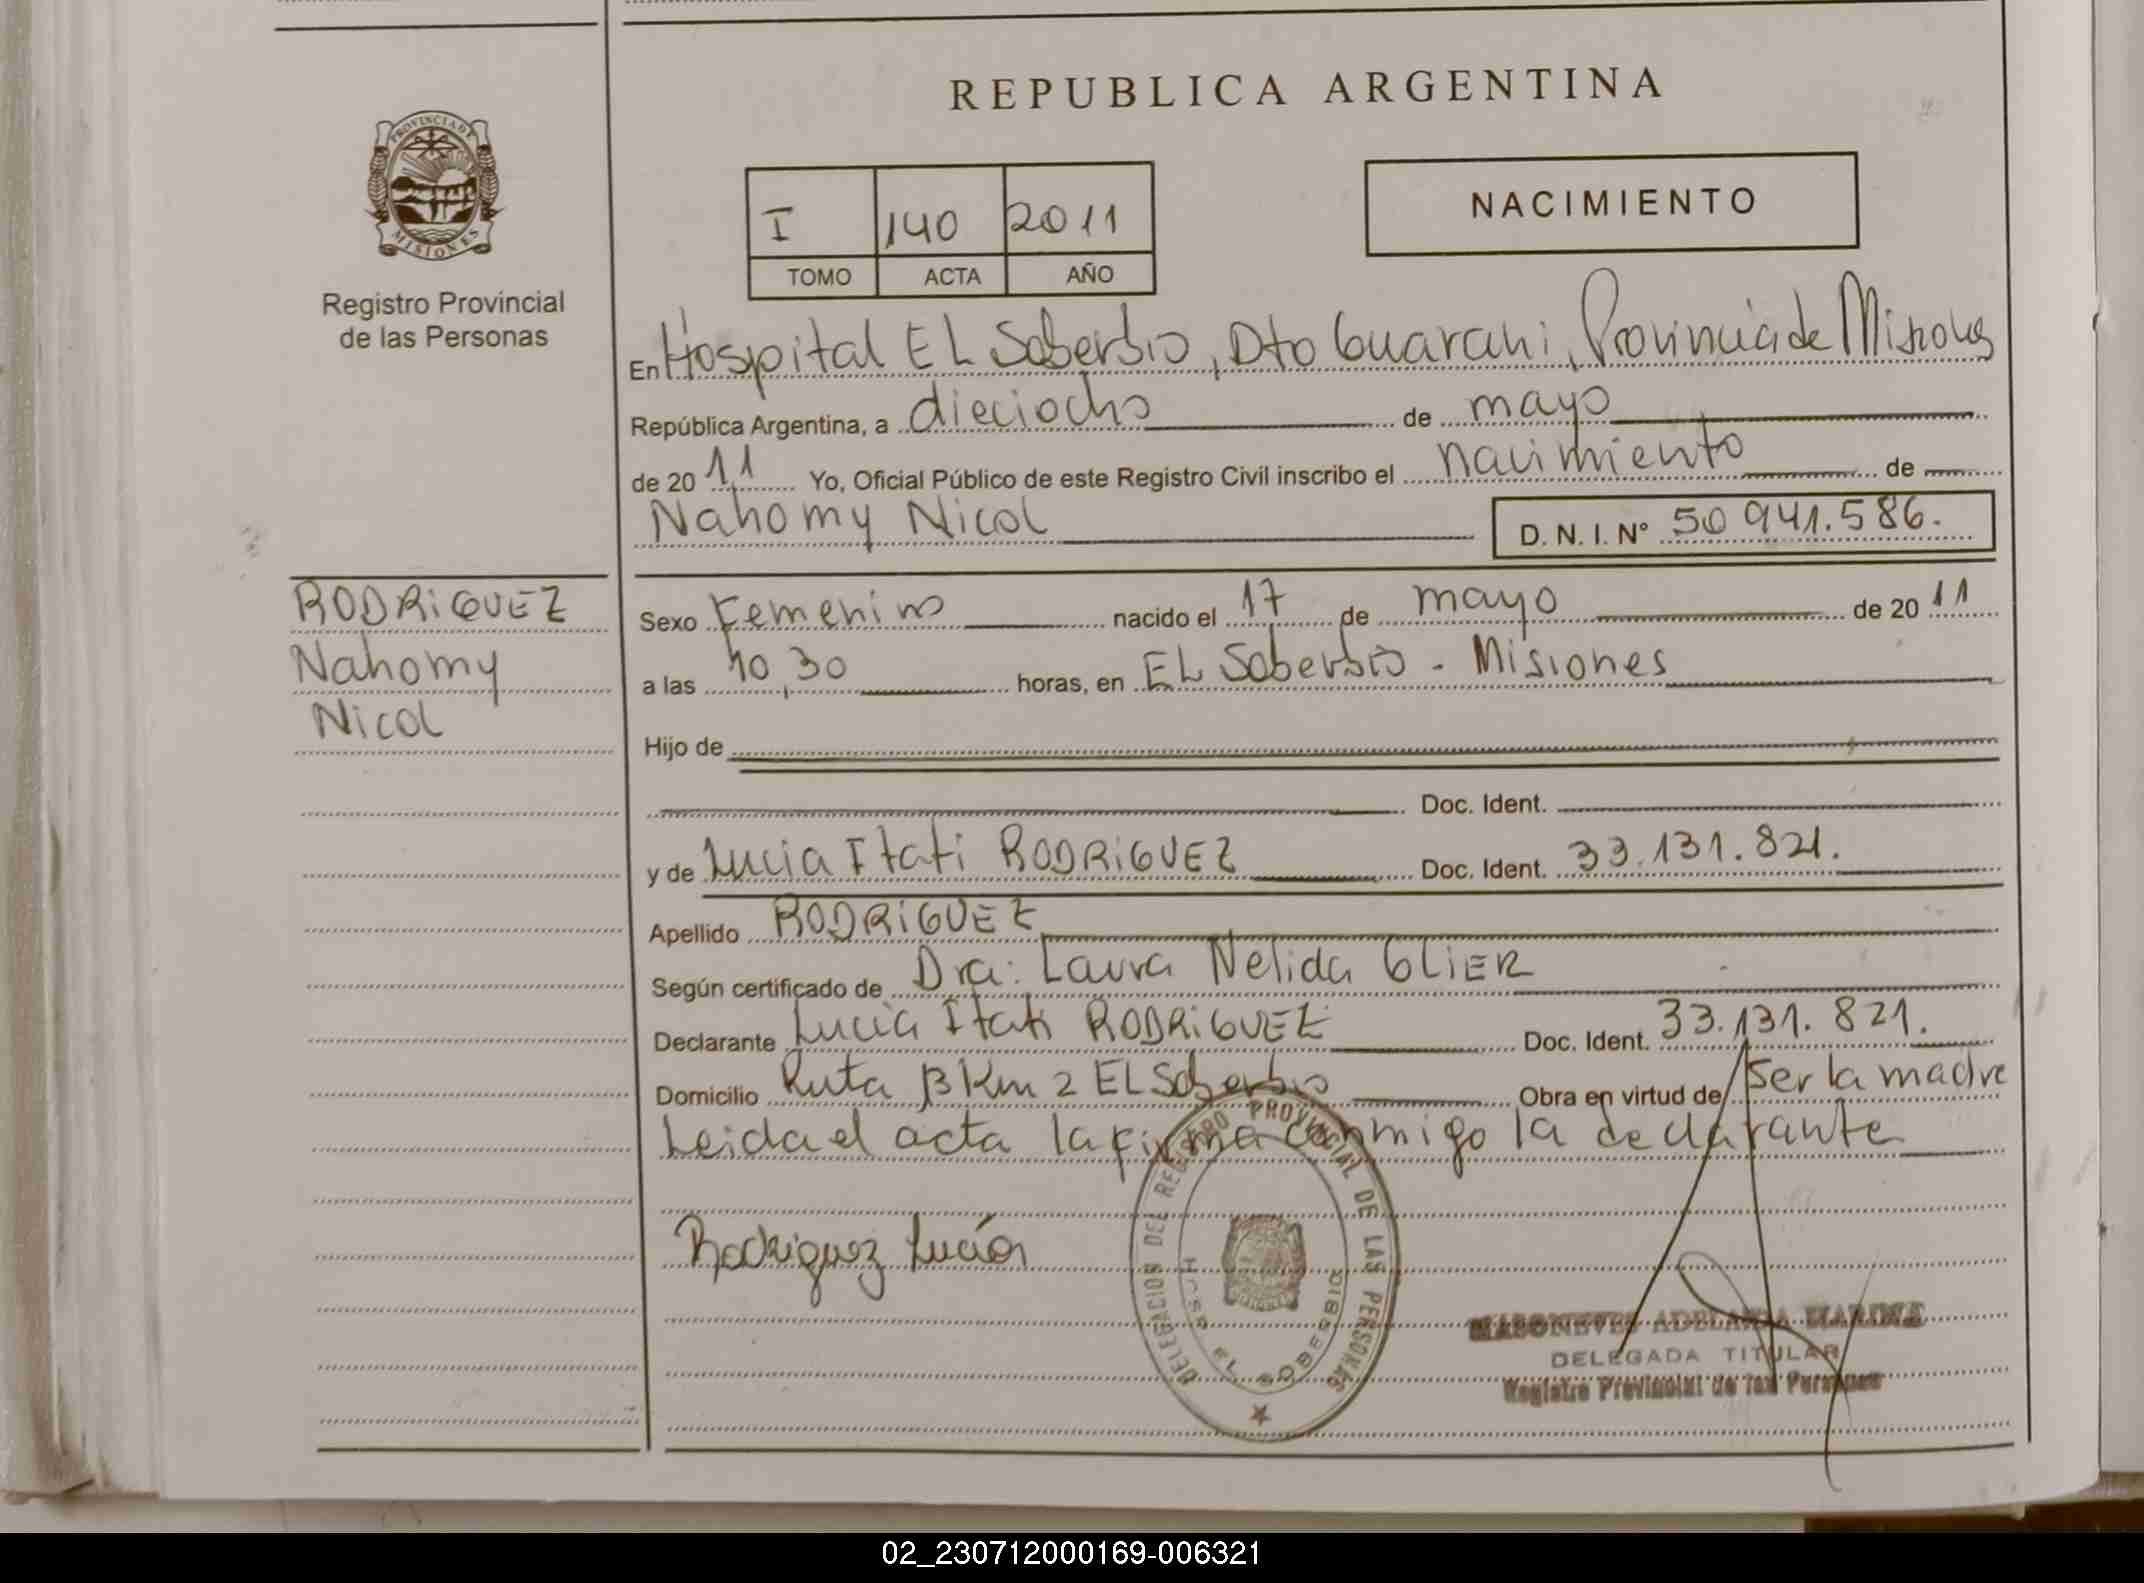 REPUBLICA ARGENTINA
PROVINCIA DE
MISIONES
Registro Provincial
de las Personas
I 140 2011
TOMO ACTA AÑO
NACIMIENTO
En Hospital EL Soberbio, Dto Guarani, Provincia de Misiones
República Argentina, a dieciocho de mayo
de 20 11 Yo, Oficial Público de este Registro Civil inscribo el nacimiento de
Nahomy Nicol D. N. I. Nº 50 941.586.
RODRIGUEZ
Nahomy
Nicol
Sexo Femenino nacido el 17 de mayo de 20 11
a las 10,30 horas, en EL Soberbio - Misiones
Hijo de
Doc. Ident.
y de Lucia Itati RODRIGUEZ Doc. Ident. 33.131.821.
Apellido RODRIGUEZ
Según certificado de Dra: Laura Nelida GLIER
Declarante Lucia Itati RODRIGUEZ Doc. Ident. 33.131.821.
Domicilio Ruta 13 Km 2 EL Soberbio Obra en virtud de ser la madre
Leida el acta la firma conmigo la declarante
Rodriguez Lucia
DELEGACION DEL REGISTRO PROVINCIAL DE LAS PERSONAS
HOSP. EL SOBERBIO
DELEGADA TITULAR
Registro Provincial de las Personas
02_230712000169-006321